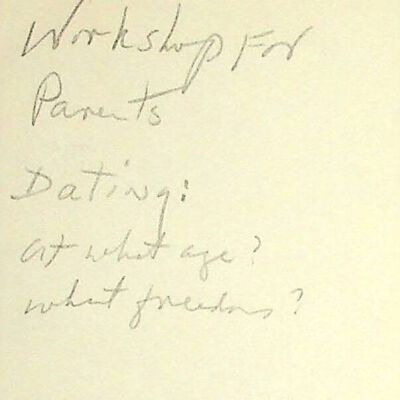 Workshop For
Parents
Dating:
at what age?
what freedoms?